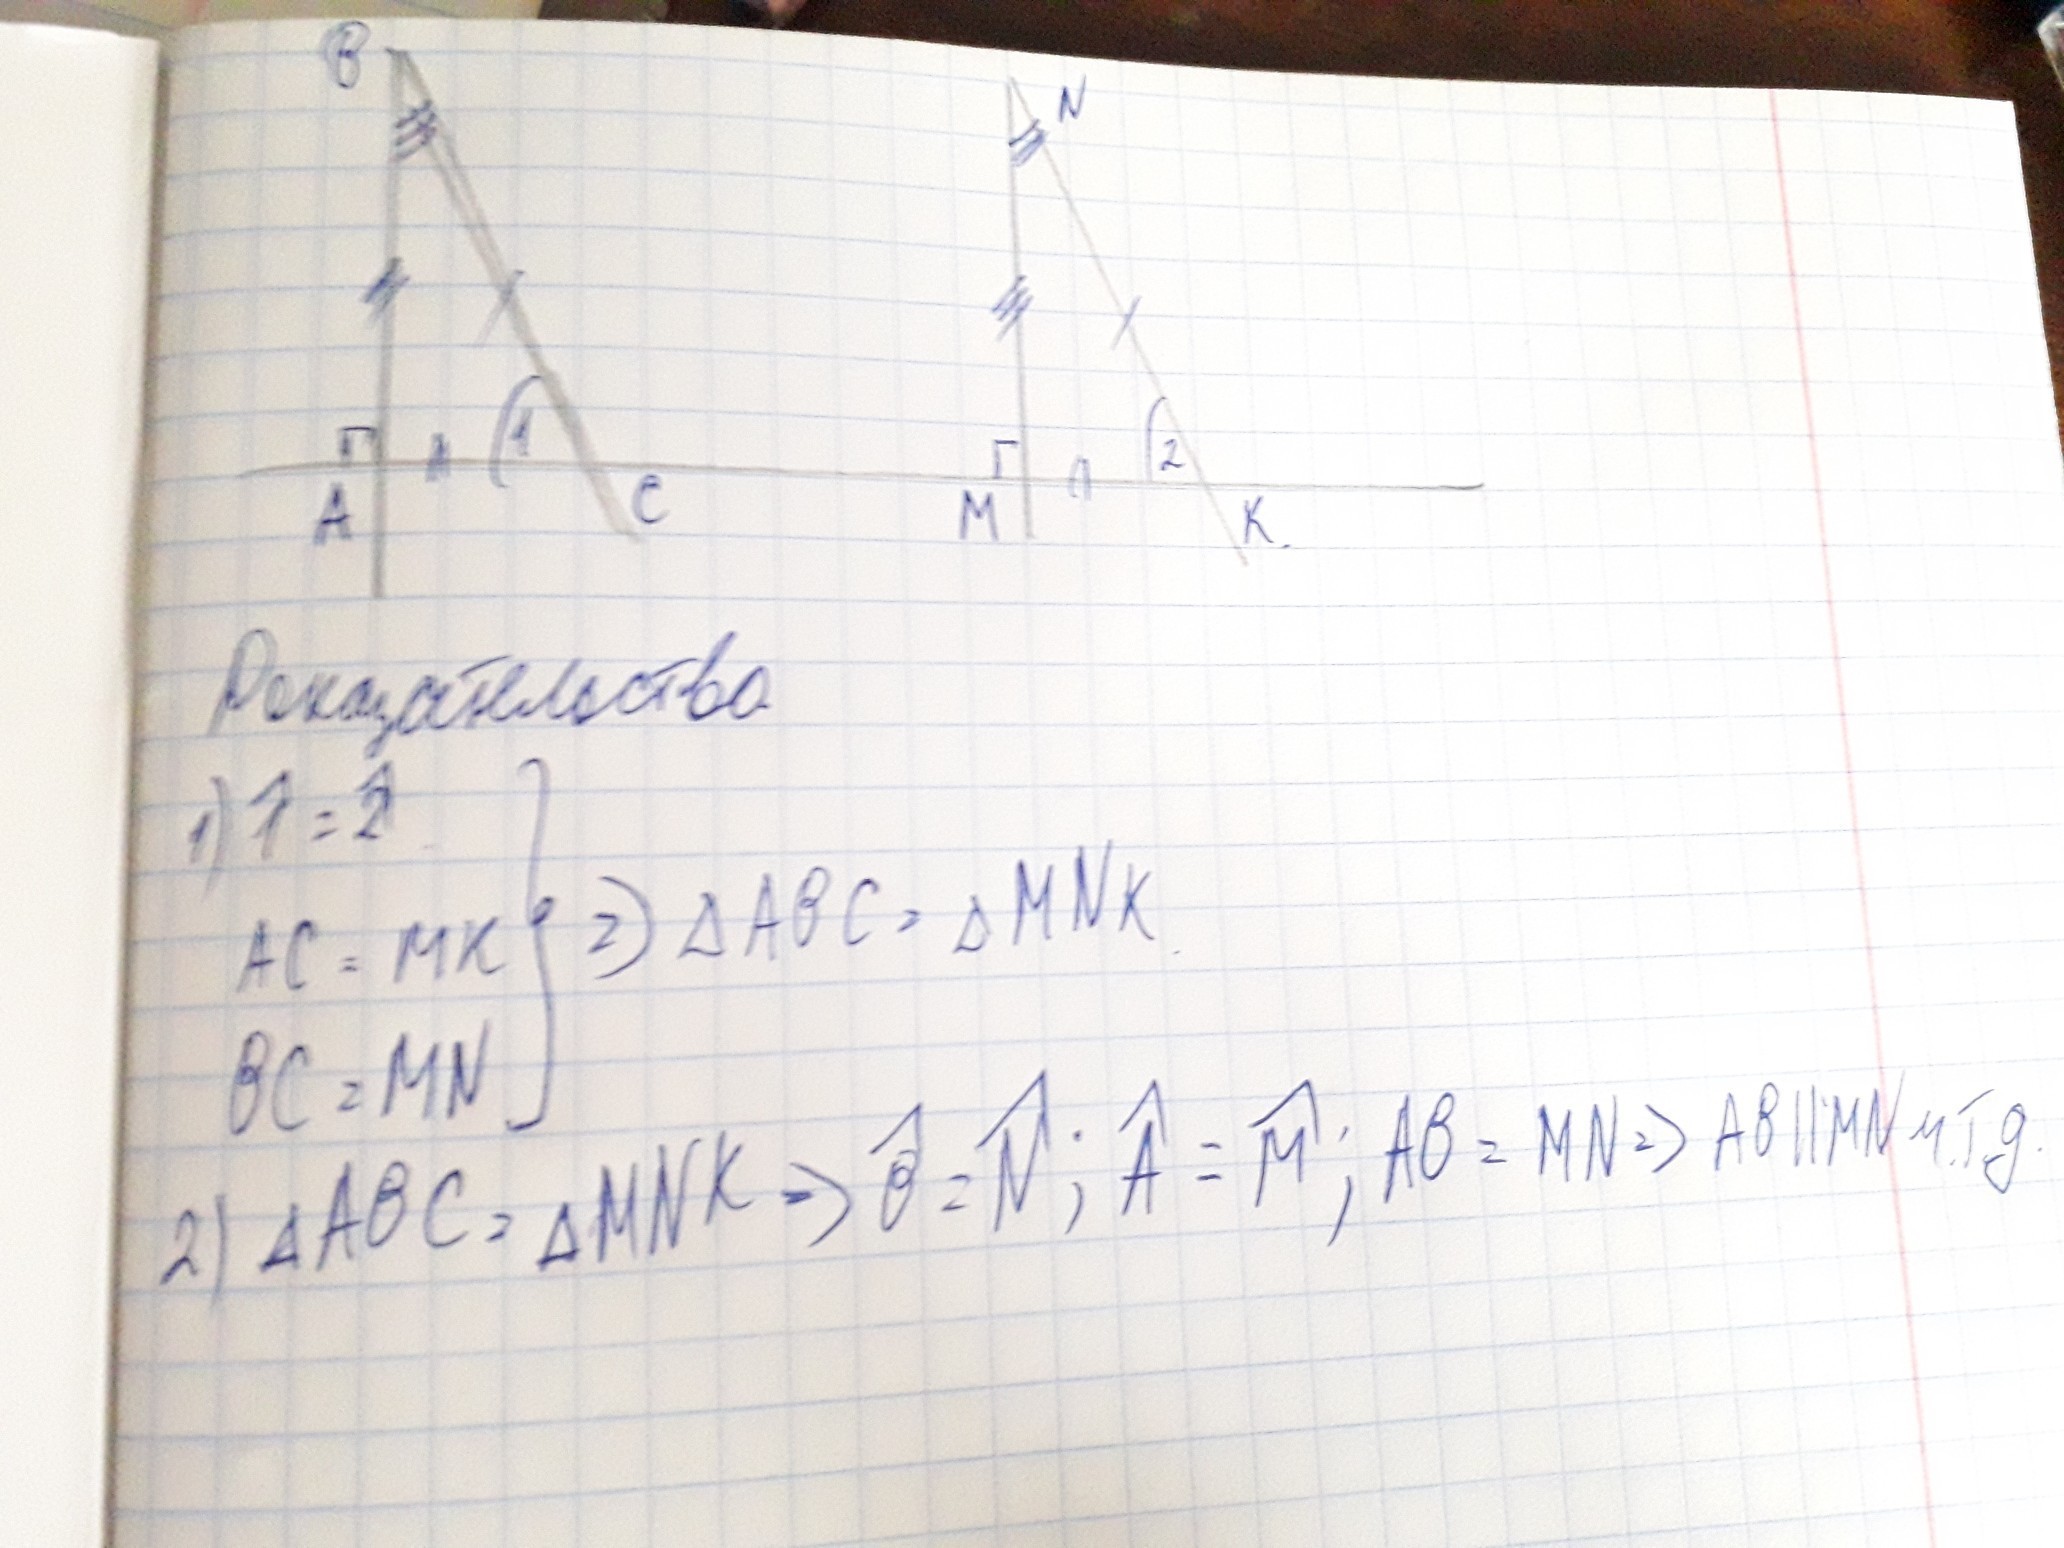 B N
1 2
A C M K.
Доказательства
1) 1̂ = 2̂
AC = MK
BC = MN
=> △ABC = △MNK.
2) △ABC = △MNK => B̂ = N̂; Â = M̂; AB = MN => AB||MN ч.т.д.